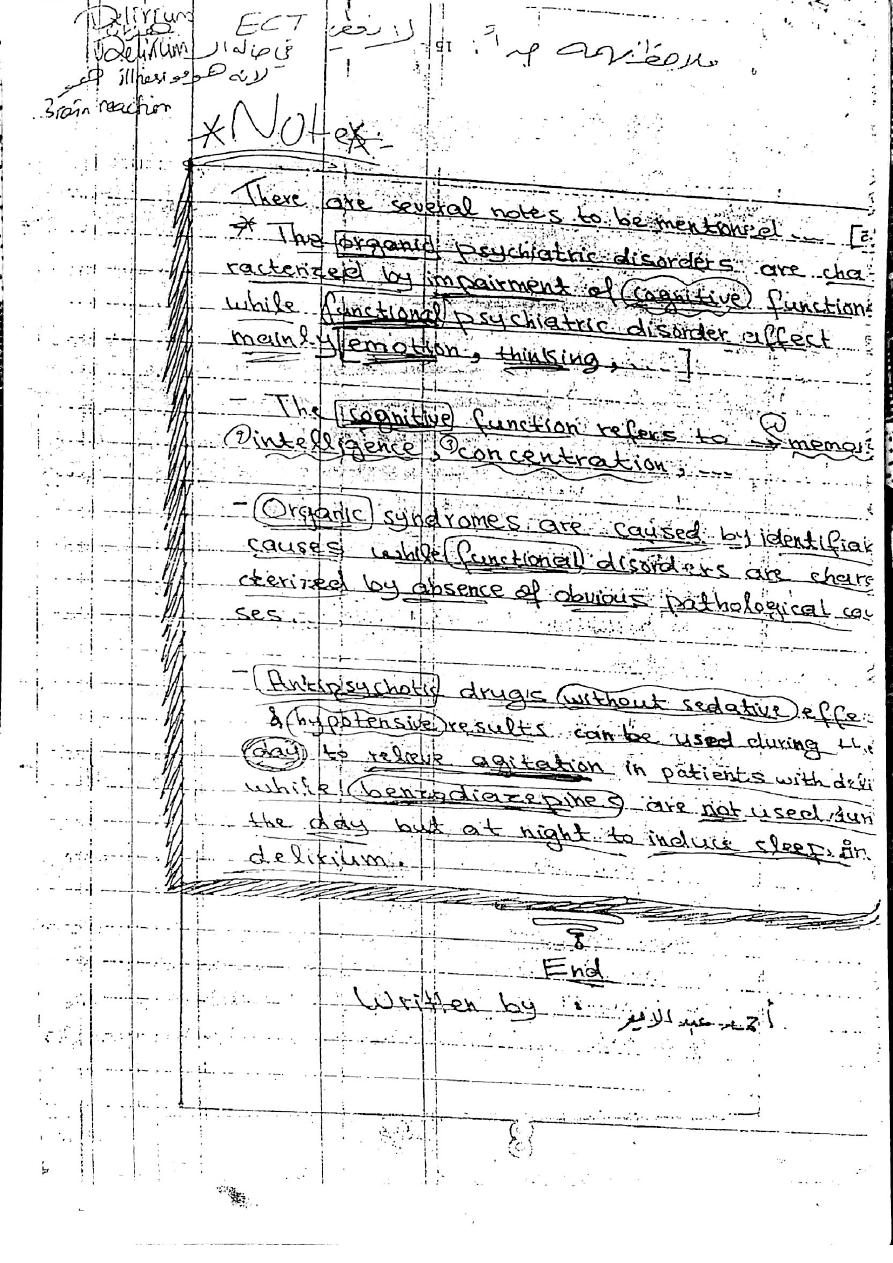 ملاحظة مهمة جداً: 15 لا نعطي ECT
Delirium
في حالة ال Delirium
لانه هو illness هو
Brain reaction
*Note*:-
There are several notes to be mentioned.... [
* The organic psychiatric disorders are cha-
racterized by impairment of cognitive function
while functional psychiatric disorder affect
mainly emotion, thinking, ....]
- The cognitive function refers to → ① memor
② intelligence, ③ concentration, ---
- Organic syndromes are caused by identifia
causes while functional disorders are chara
cterized by absence of obvious pathological cau
ses.
- Antipsychotic drugs without sedative effe
& hypotensive results can be used during the
day to relieve agitation in patients with deli
while benzodiazepines are not used dur
the day but at night to induce sleep in
delirium.
End
Written by :